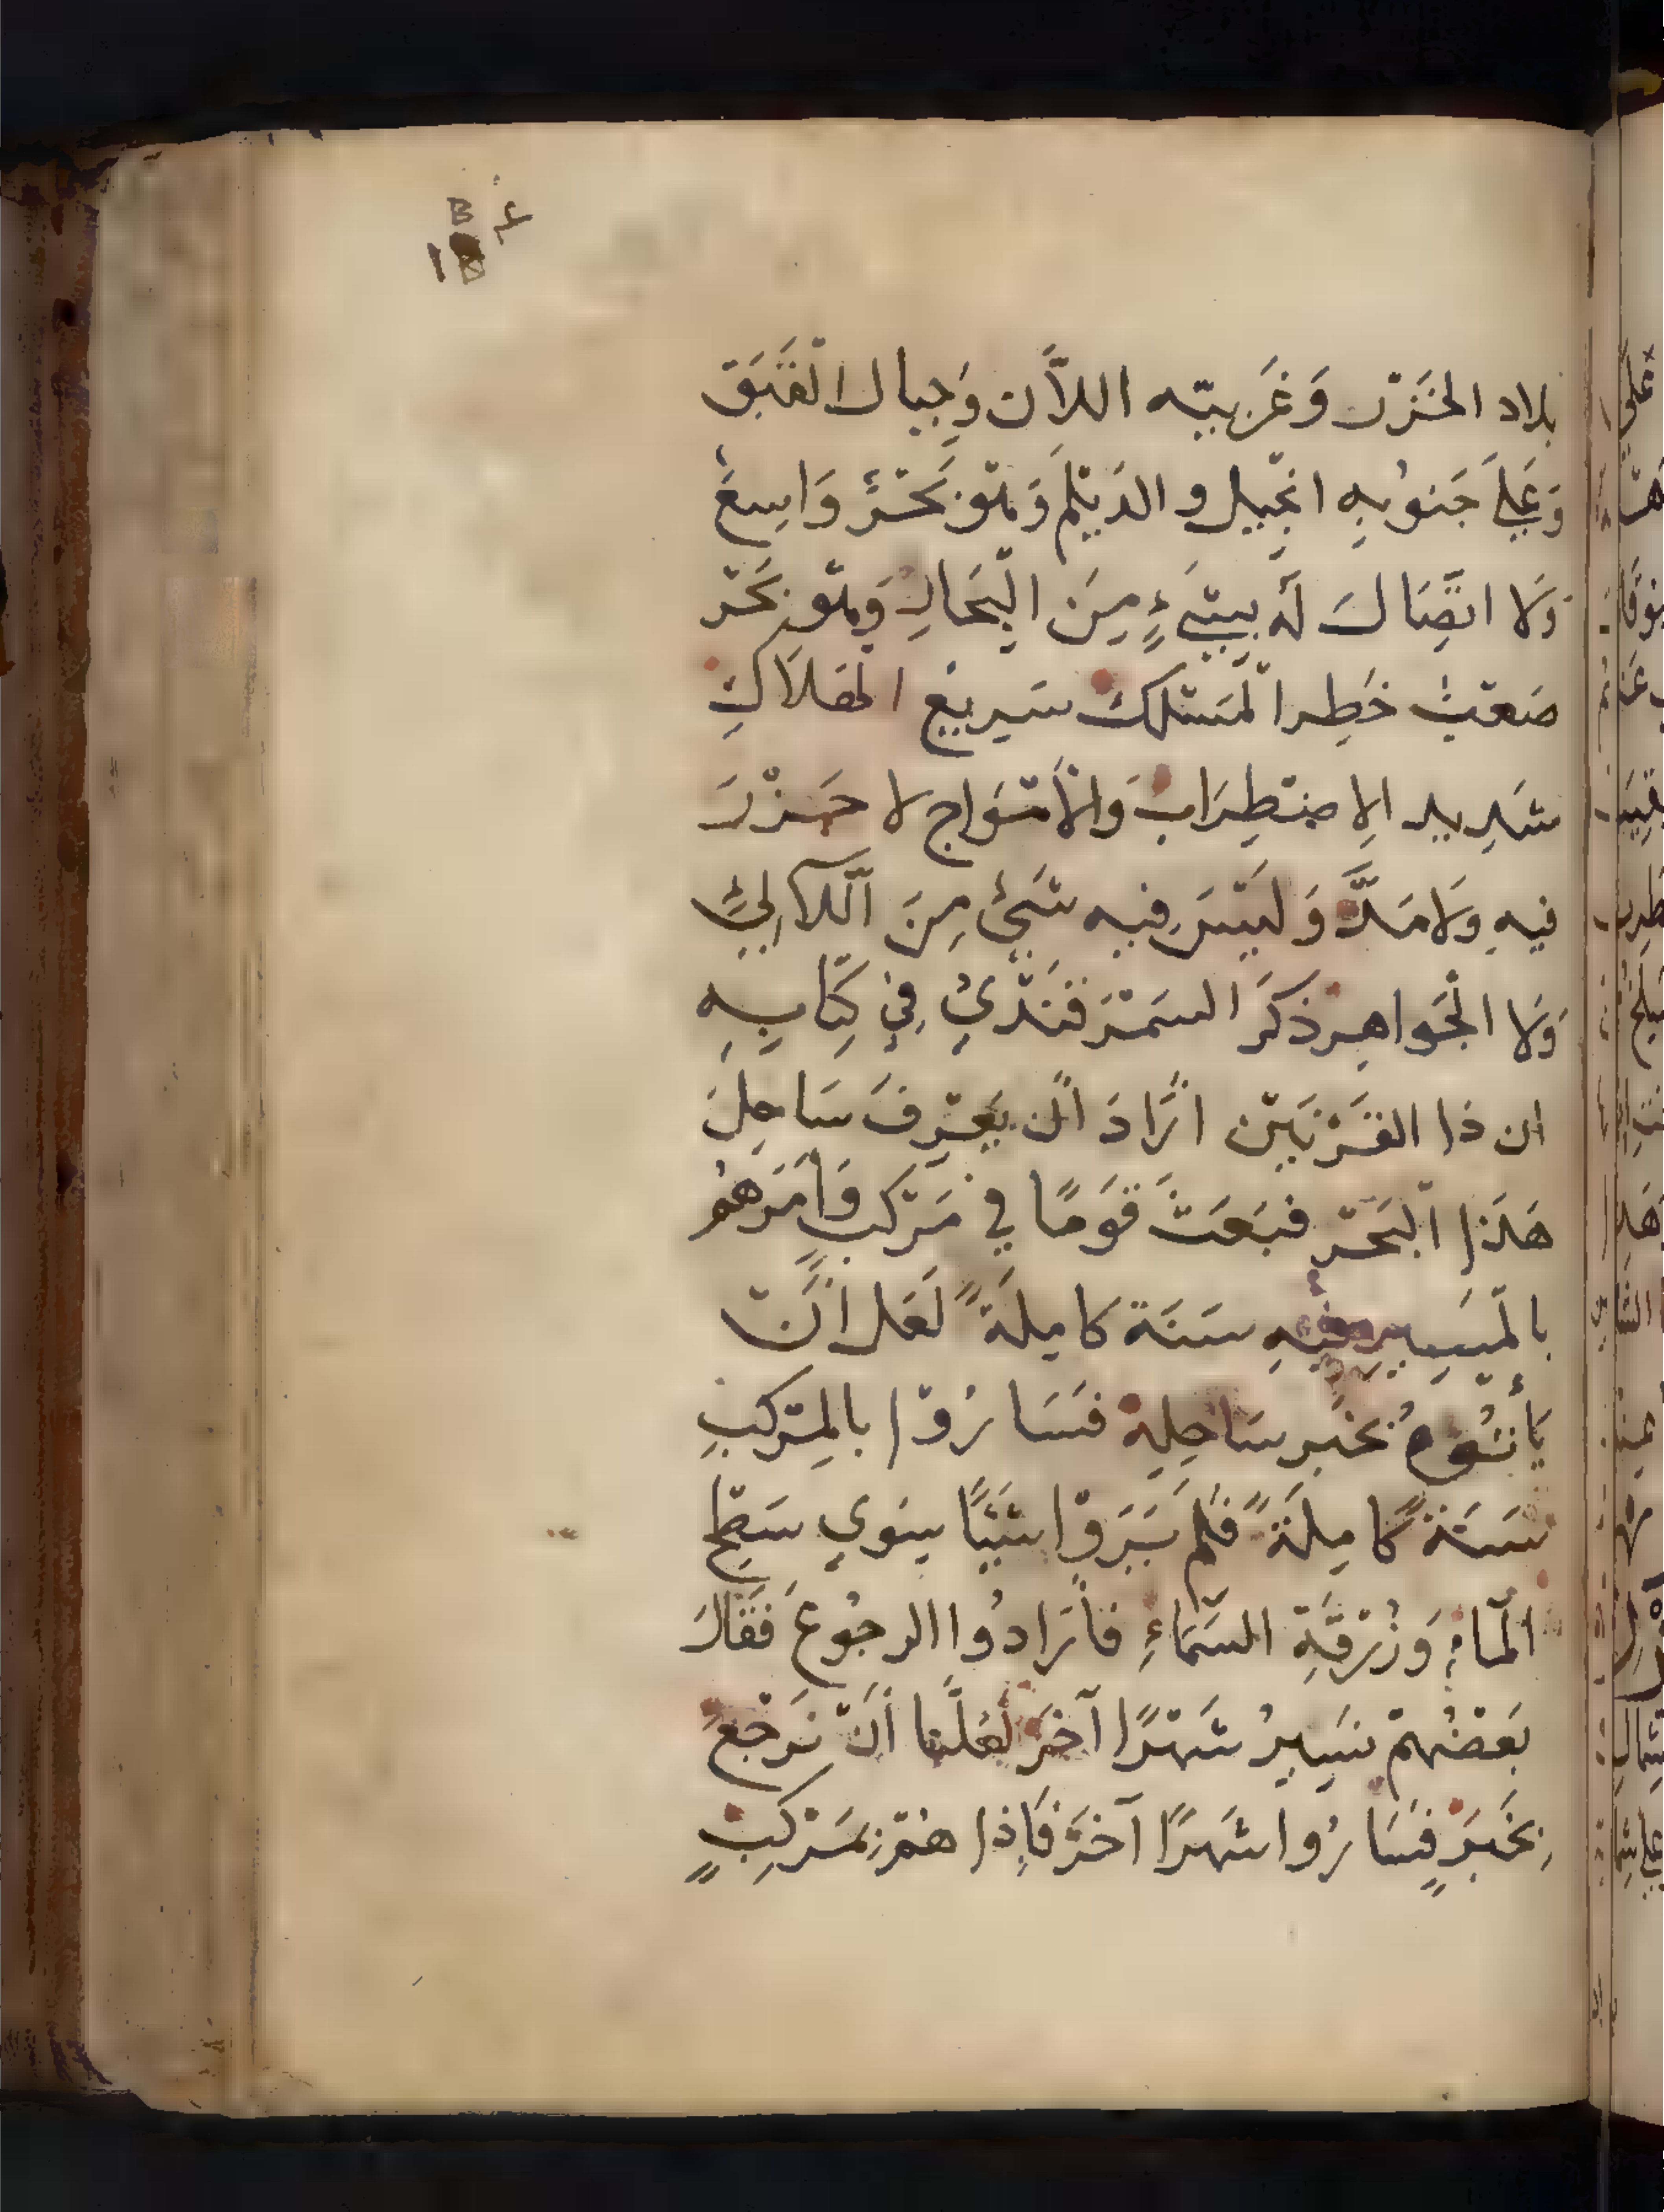 بلاد الخَزَر وَغَربيّه اللاَّن وَجِبال الْقَبَق
وَعَلَى جَنوُبِهِ الجِّيل والدَيْلَم وَهْوَ بَحْرٌ وَاسِعٌ
وَلا اتّصَالَ لَهُ بِشَيءٍ مِنَ الْبِحَارِ وَهْوَ بَحْر
صَعْبٌ خَطِر الْمَسْلَك سَرِيعُ الهَلاَكِ
شَدِيد الِاضْطِرَاب وَالْأَمْوَاج لا جَزْرَ
فِيهِ وَلا مَدَّ وَلَيْسَ فِيه شَيْئٌ مِنَ اللَّآلِئِ
وَلا الْجَواهِر ذكَرَ السَمَرْقَنْدِيُ فِي كِتَابِهِ
ان ذا القَرْنَيْن أَرَادَ أَن يَعْرِفَ سَاحِلَ
هَذَا الْبَحْر فبَعَثَ قَوْمًا فِي مَرْكَبٍ وَأَمَرَهُمْ
بالْمَسِيرِ فِيهِ سَنَة كامِلَةً لَعَل أَنْ
يَأْتُوهُ بخَبَر سَاحِلِهِ فسَارُوْا بالمَرْكَبِ
سَنَةً كامِلَةً فَلَم يَرَوْا شَيْئًا سِوَى سَطْح
الْمَاءِ وَزُرْقَةِ السَّمَاءِ فأَرَادُوا الرجُوعَ فَقَالَ
بَعْضُهُمْ نَسِيرُ شَهْرًا آخَرَ لَعَلَّنَا أَنْ نَرْجِعَ
بِخَبَرٍ فسَارُوا شَهرًا آخَرَ فَإِذا هُمْ بِمَرْكَبٍ